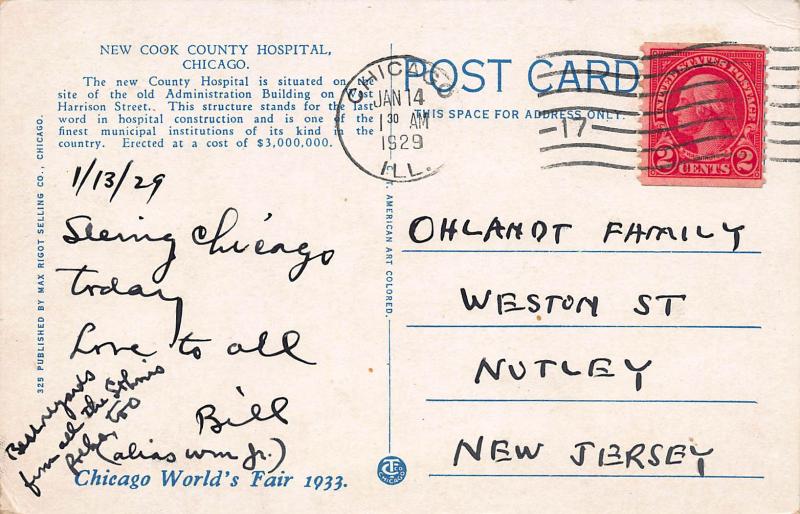 NEW COOK COUNTY HOSPITAL,
CHICAGO.
The new County Hospital is situated on the
site of the old Administration Building on West
Harrison Street.. This structure stands for the last
word in hospital construction and is one of the
finest municipal institutions of its kind in the
country. Erected at a cost of $3,000,000.
1/13/29
Seeing Chicago
today
Love to all
Bill
(alias wm Jr.)
Best regards
from all the
too
Chicago World's Fair 1933.
325 PUBLISHED BY MAX RIGOT SELLING CO., CHICAGO.
AMERICAN ART COLORED.
CHICAGO
POST CARD
THIS SPACE FOR ADDRESS ONLY.
CHICAGO
JAN 14
1 30 AM
1929
ILL.
17
UNITED STATES POSTAGE
2 CENTS 2
OHLANDT FAMILY
WESTON ST
NUTLEY
NEW JERSEY